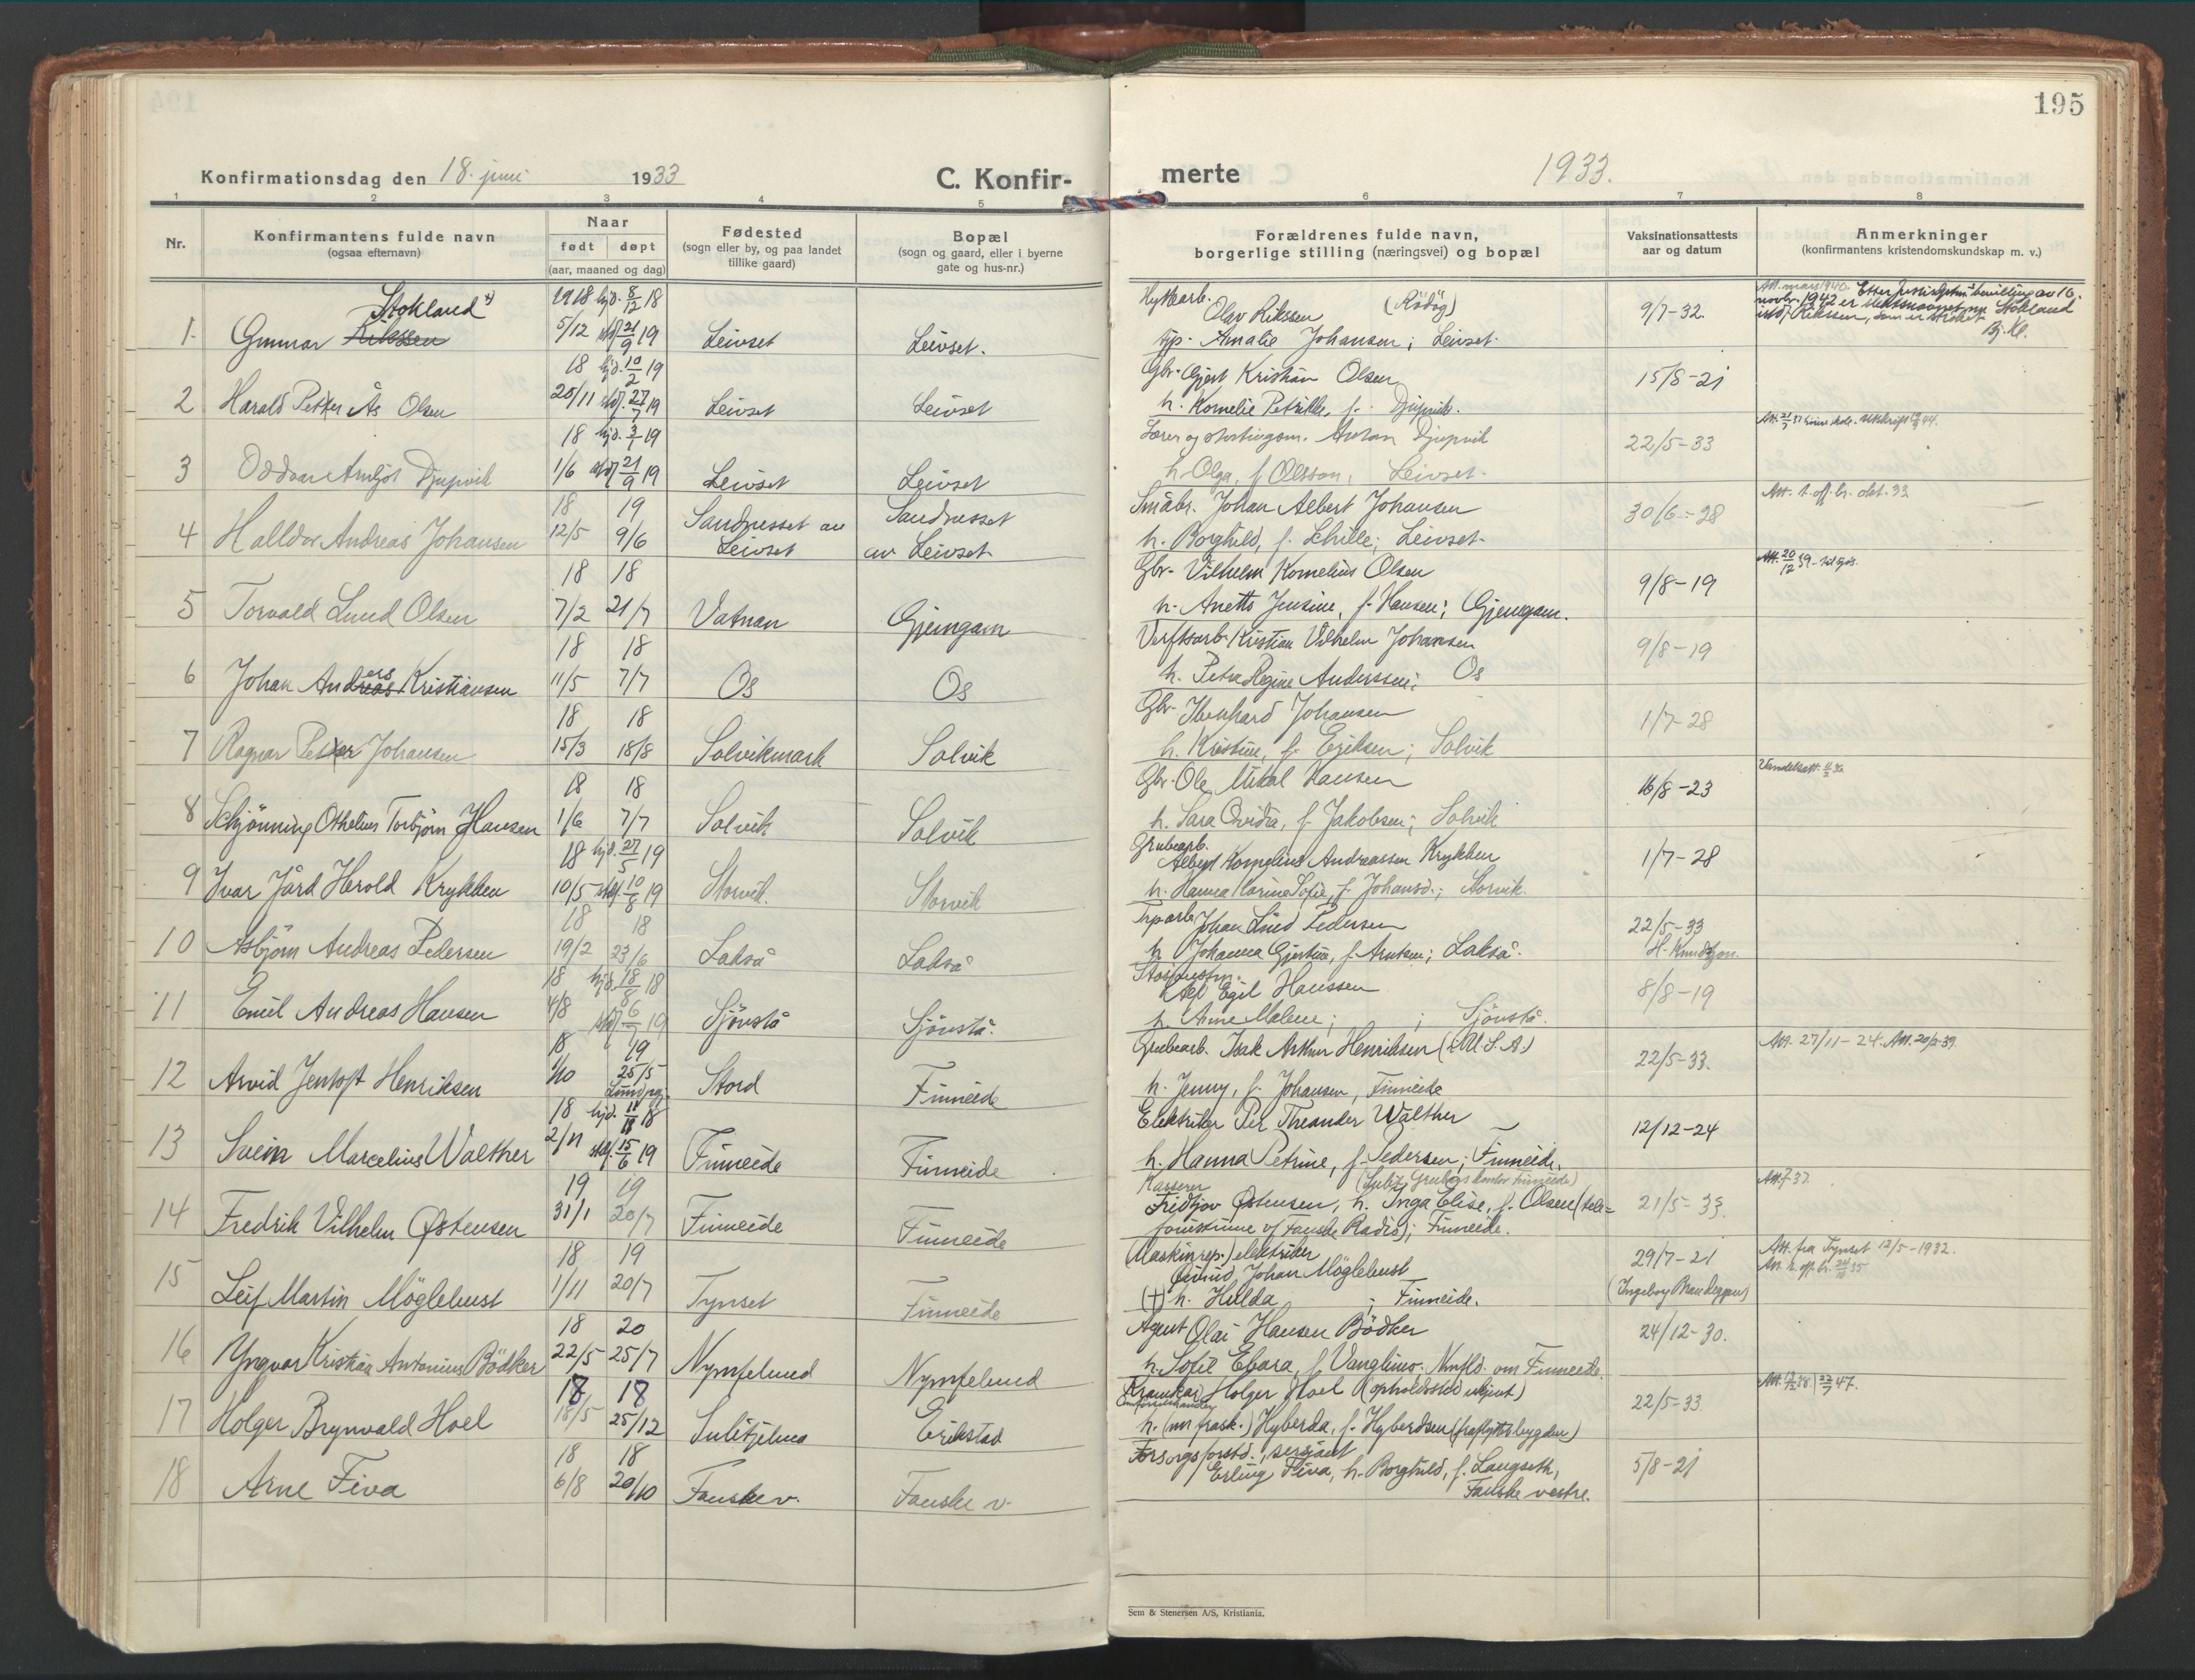 195
Konfirmationsdag den 18. juni 1933
C. Konfir-
merte
1933.
1 2 3 4 5 6 7 8
Nr.
Konfirmantens fulde navn
(ogsaa efternavn)
Naar
født døpt
(aar, maaned og dag)
Fødested
(sogn eller by, og paa landet
tillike gaard)
Bopæl
(sogn og gaard, eller i byerne
gate og hus-nr.)
Forældrenes fulde navn,
borgerlige stilling (næringsvei) og bopæl
Vaksinationsattests
aar og datum
Anmerkninger
(konfirmantens kristendomskundskap m. v.)
Stokland
1918 hjd. 8/12 18
1. Gunnar Rikssen 5/12 21/9 19 Leivset Leivset.
Olav Rikssen (Rödög)
Amalie Johansen; Leivset.
9/7-32.
1942 er Stokland
Rikssen, som er
18 hjd. 10/2 19
2 Harald Petter Ås Olsen 20/11 27/7 19 Leivset Leivset
Gbr. Gjert Kristian Olsen
h. Kornelie Petrikke, f. Djupvik.
15/8-21
18 hjd. 3/1 19
3 Oddvar Arnljot Djupvik 1/6 21/9 19 Leivset Leivset
Lærer og stortingsm. Anton Djupvik
h. Olga, f. Olsson, Leivset.
22/5-33
18 19
4 Halldor Andreas Johansen 12/5 9/6 Sandnesset av Leivset Sandnesset av Leivset
Småbr. Johan Albert Johansen
h. Borghild, f. Schille; Leivset.
30/6-28
Att. t. off. br. okt. 33
18 18
5 Torvald Lund Olsen 7/2 21/7 Vatnan Gjemgam
Gbr. Vilhelm Kornelius Olsen
h. Anette Jensine, f. Hansen; Gjemgam.
9/8-19
Att. 20/12 39
18 18
6 Johan Andreas ers Kristiansen 11/5 7/7 Os Os
Verftsarb. Kristian Vilhelm Johansen
h. Petra Regine Anderssen; Os
9/8-19
18 18
7 Ragnar Petter Johansen 15/3 18/8 Solvikmark Solvik
Gbr. Johansen
h. Kristine, f. Eriksen; Solvik
1/7-28
18 18
8 Schjönning Othelius Torbjörn Hansen 1/6 7/7 Solvik Solvik
Gbr. Ole Mikal Hansen
h. Sara Ovidia, f. Jakobsen; Solvik
16/8-23
Vandelsatt.
18 hjd. 27/5 19
9 Ivar Jård Herold Krykken 10/5 10/8 19 Storvik. Storvik
Grubearb.
Albert Kornelius Andreassen Krykken
h. Hanna Karina Sofie, f. Johansd.; Storvik.
1/7-28
18 18
10 Asbjörn Andreas Pedersen 19/2 23/6 Lakså Lakså
Johan Lund Pedersen
h. Johanna Gjertine, f. Arntsen; Lakså.
22/5-33
H. Knudtzon.
18 hjd. 18/8 18
11 Emil Andreas Hansen 4/8 6/7 19 Sjönstå Sjönstå.
Egil Hanssen
h. Anne Malene; ; Sjönstå.
8/8-19
18 19
12 Arvid Jentoft Henriksen 1/10 25/5 Stord Finneide
Grubearb. Isak Arthur Henriksen (U.S.A.)
h. Jenny, f. Johansen, Finneide
22/5-33.
Att. 27/11-24.
18 hjd. 18
13 Svein Marcelius Walther 2/11 15/6 19 Finneide Finneide
Elektriker Per Theander Walther
h. Hanna Petrine, f. Pedersen; Finneide.
12/12-24
19 19
14 Fredrik Vilhelm Østensen 31/1 20/7 Finneide Finneide
Kasserer
Fridtjov Østensen, h. Inga Elise, f. Olsen (tele-
Fauske Radio); Finneide.
21/5-33.
Att. 37.
18 19
15 Leif Martin Möglehust 1/11 20/7 Tynset Finneide
Maskinrep.) elektriker
Johan Möglehust
(+) h. Hulda ; Finneide.
29/7-21
(Ingeborg Brandeggen)
Att. fra Tynset 12/5-1932.
18 20
16 Yngvar Kristian Antonius Bödker 22/5 25/7 Nymfelund Nymfelund
Agent Olai Hansen Bödker
h. Sofie Ebara, f. Nmfld. om Finneide.
24/12-30.
18 18
17 Holger Brynvald Hoel 18/5 25/12 Sulitjelma Erikstad
Kramkar Holger Hoel (opholdssted ukjent)
h. Hyberda, f. Hyberdsen (fraflyttet bygden)
22/5-33
18 18
18 Arne Fiva 6/8 20/10 Fauske v. Fauske v.
Forsorgsforstd., sersjant
Erling Fiva, h. Borghild, f. Langseth,
Fauske vestre.
5/8-21
Sem & Stenersen A/S, Kristiania.